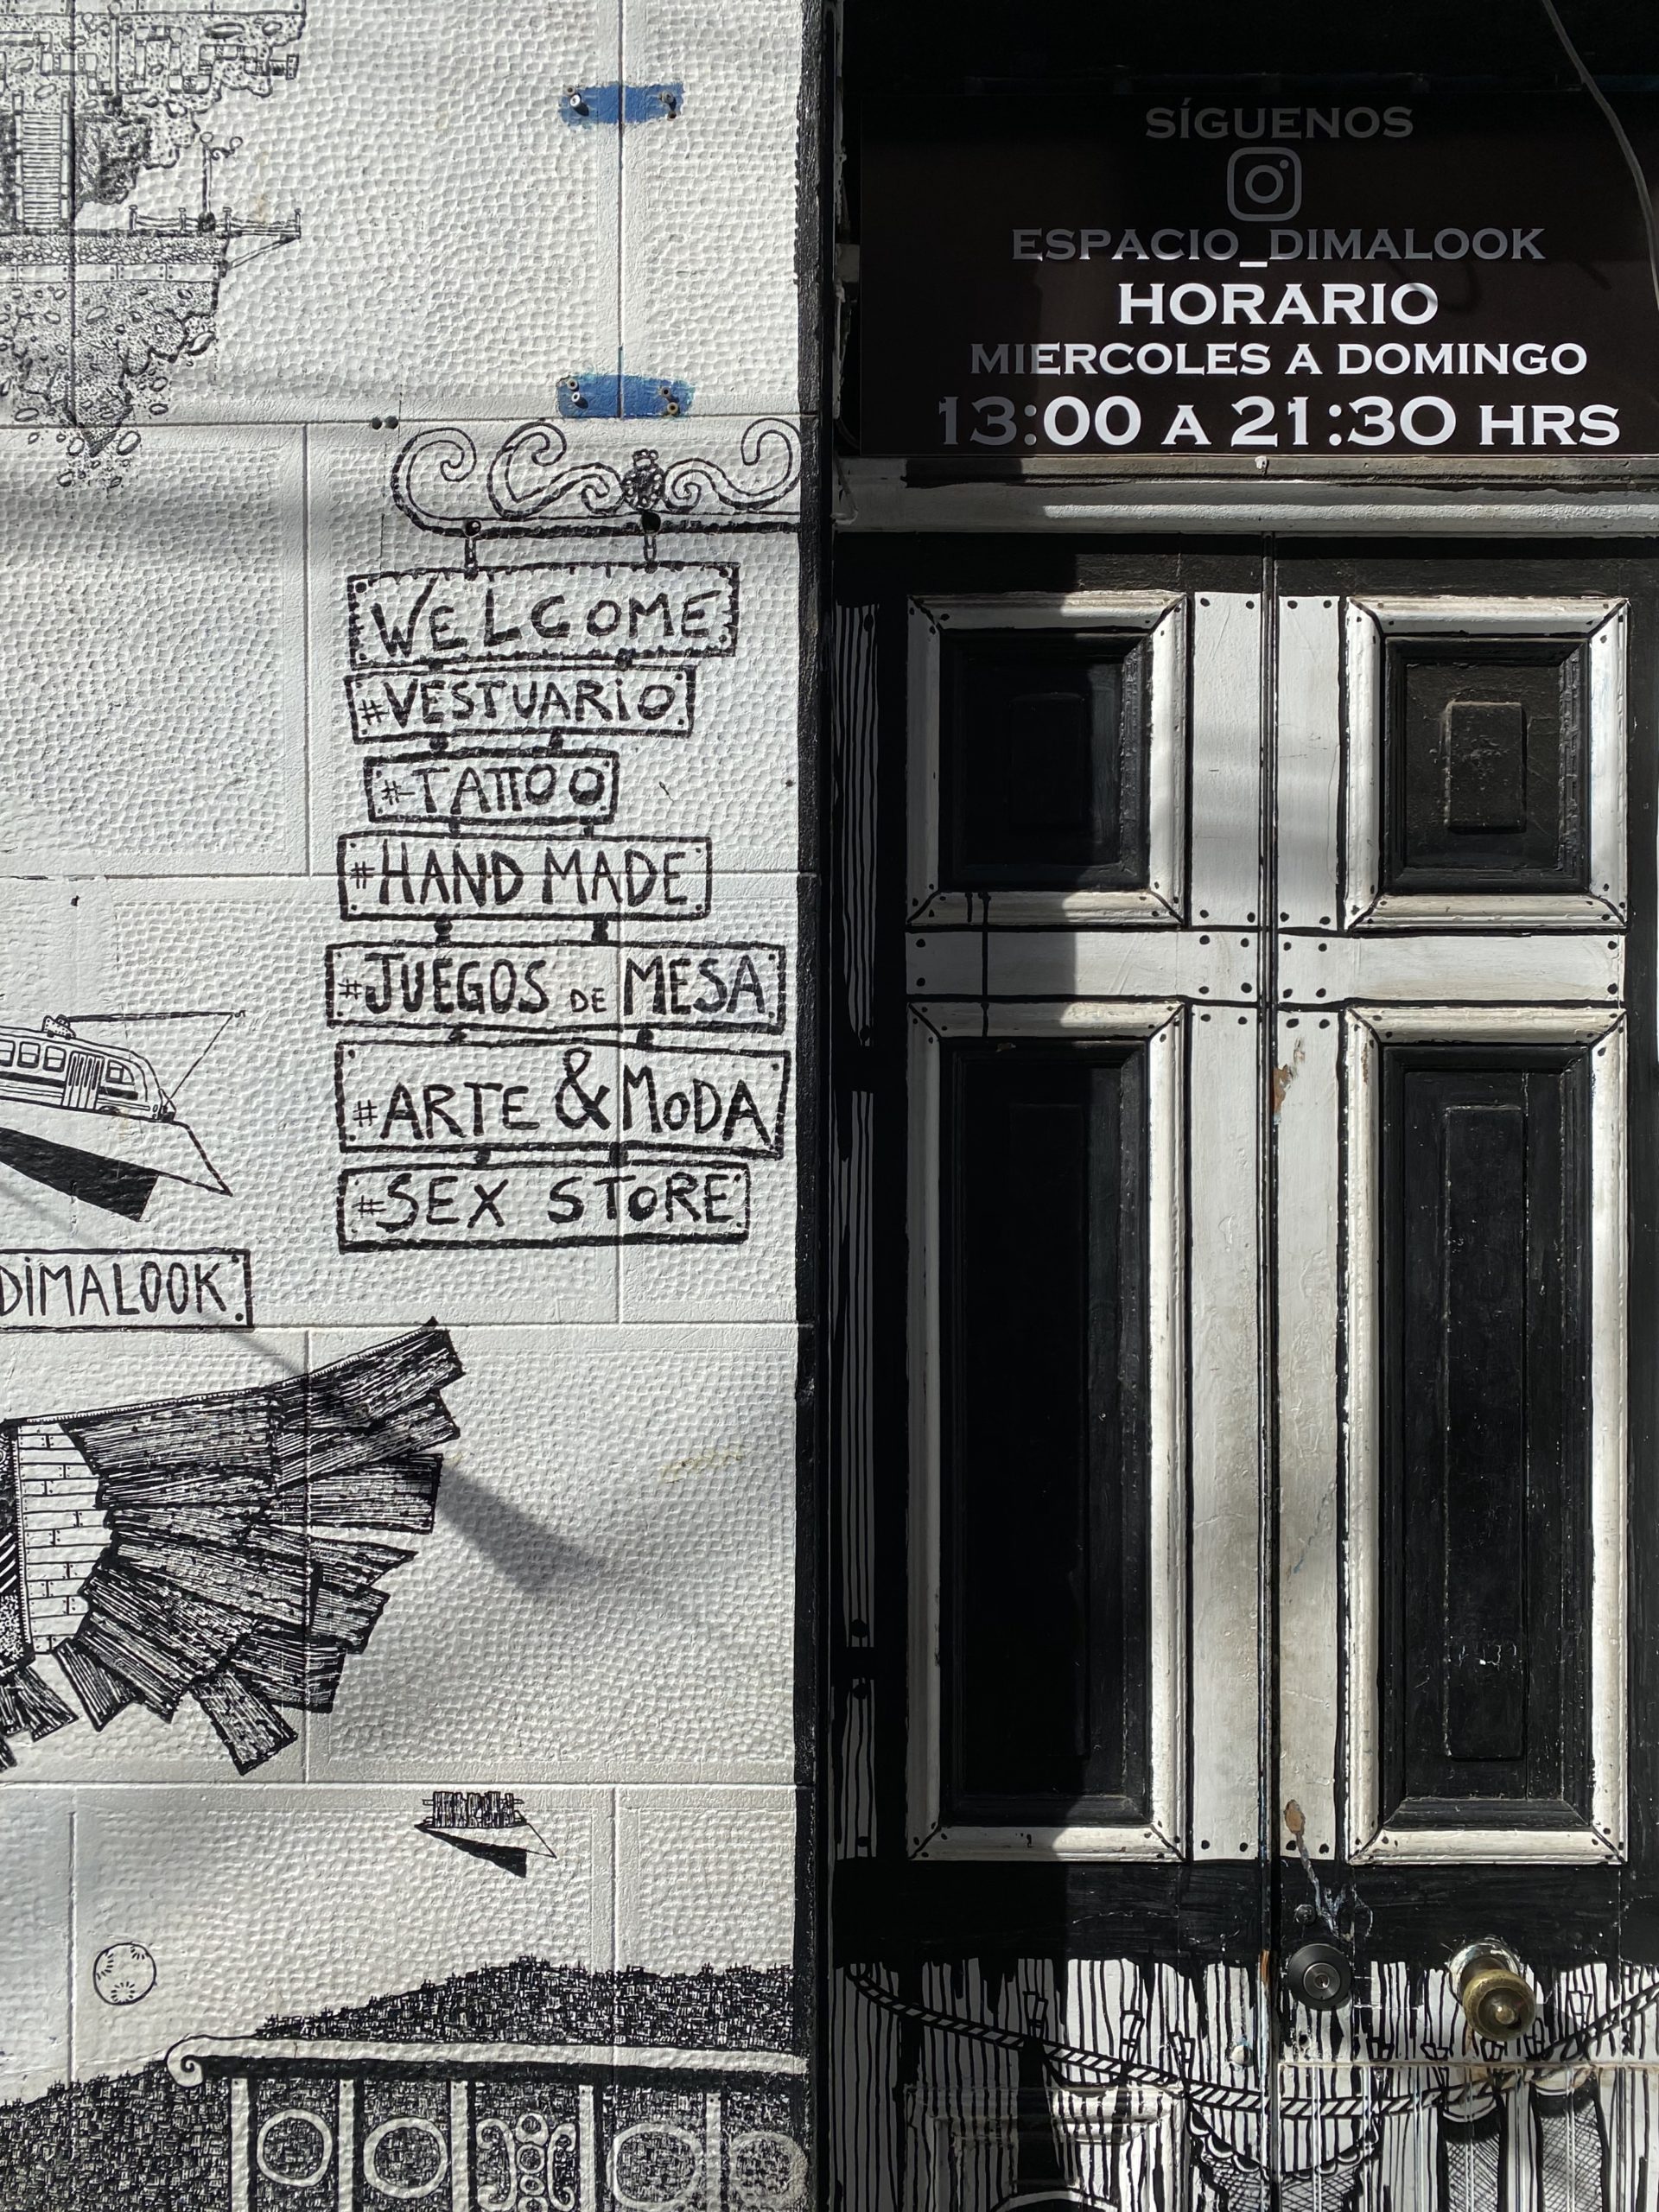 SÍGUENOS
ESPACIO_DIMALOOK
HORARIO
MIERCOLES A DOMINGO
13:00 A 21:30 HRS
WELCOME
#VESTUARIO
#TATTOO
#HAND MADE
#JUEGOS DE MESA
#ARTE & MODA
#SEX STORE
DIMALOOK